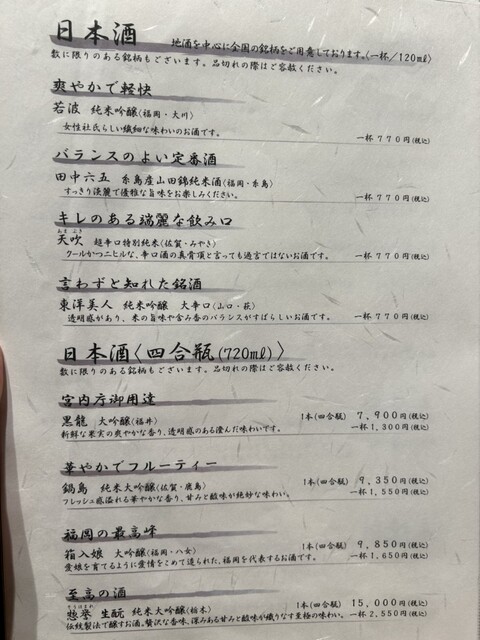 日本酒 地酒を中心に全国の銘柄をご用意しております。〈一杯／120ml〉
数に限りのある銘柄もございます。品切れの際はご容赦ください。
爽やかで軽快
若波 純米吟醸(福岡・大川)
女性杜氏らしい繊細な味わいのお酒です。 一杯 770円(税込)
バランスのよい定番酒
田中六五 糸島産山田錦純米酒(福岡・糸島)
すっきり淡麗で優雅な旨味をお楽しみください。 一杯 770円(税込)
キレのある端麗な飲み口
あまぶき
天吹 超辛口特別純米(佐賀・みやき)
クールかつニヒルな、辛口酒の真骨頂と言っても過言ではないお酒です。 一杯 770円(税込)
言わずと知れた銘酒
東洋美人 純米吟醸 大辛口(山口・萩)
透明感があり、米の旨味や含み香のバランスがすばらしいお酒です。 一杯 770円(税込)
日本酒〈四合瓶(720ml)〉
数に限りのある銘柄もございます。品切れの際はご容赦ください。
宮内庁御用達
黒龍 大吟醸(福井) 1本(四合瓶) 7,900円(税込)
新鮮な果実の爽やかな香り、透明感のある澄んだ味わいです。 一杯 1,300円(税込)
華やかでフルーティー
鍋島 純米大吟醸(佐賀・鹿島) 1本(四合瓶) 9,350円(税込)
フレッシュ感溢れる華やかな香り、甘みと酸味が絶妙な味わい。 一杯 1,550円(税込)
福岡の最高峰
箱入娘 大吟醸(福岡・八女) 1本(四合瓶) 9,850円(税込)
愛娘を育てるように愛情をこめて造られた、福岡を代表するお酒です。 一杯 1,650円(税込)
至高の酒
そうほまれ
惣誉 生酛 純米大吟醸(栃木) 1本(四合瓶) 15,000円(税込)
伝統製法で醸すお酒。贅沢な香味、深みある甘みと酸味が織りなす至極の味わい。 一杯 2,550円(税込)